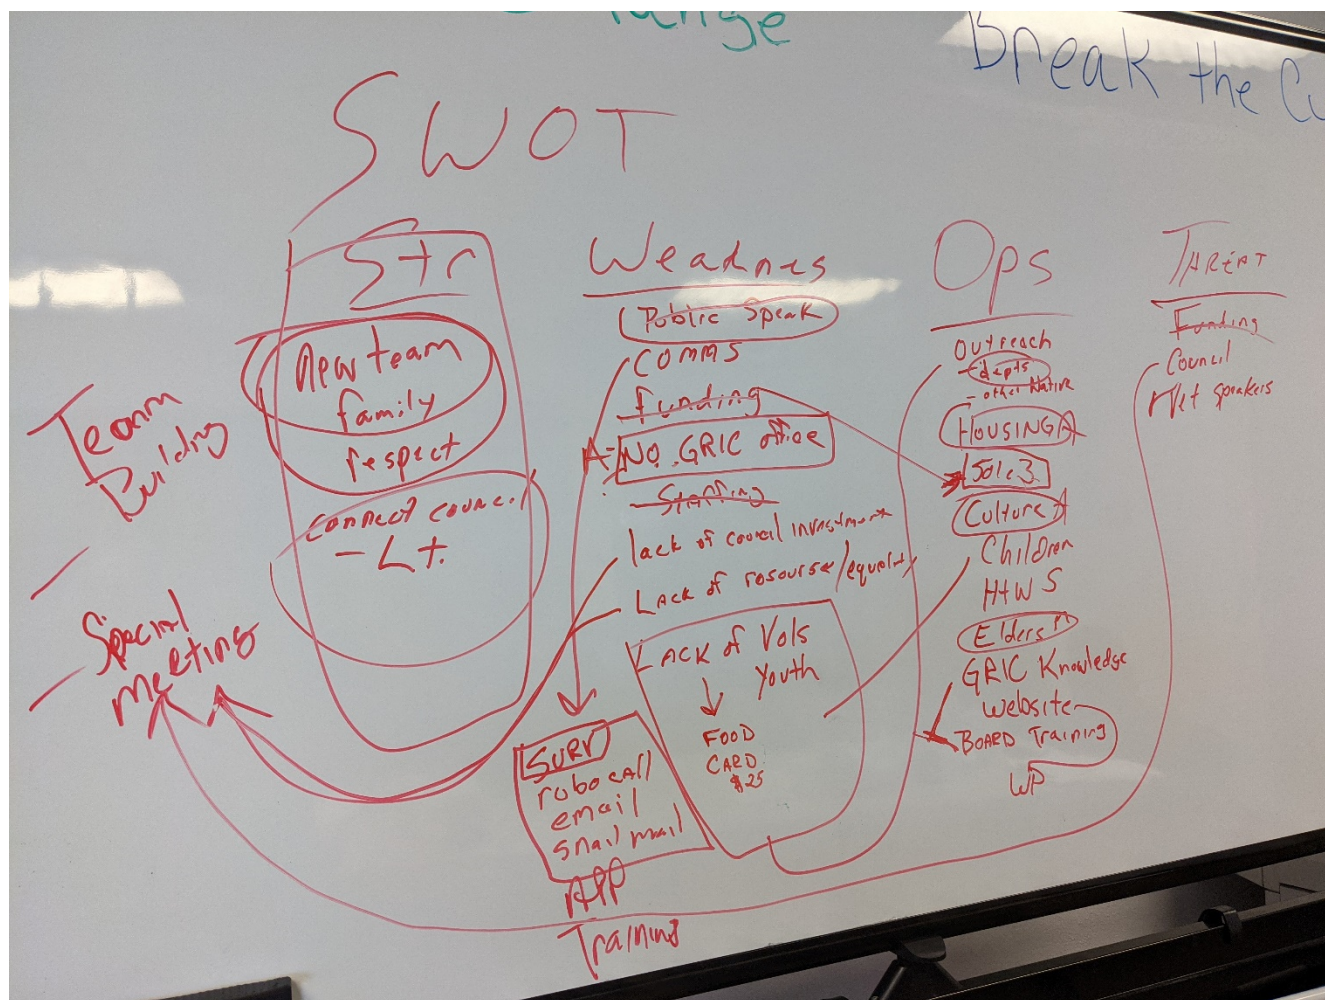 Break the
SWOT
Str
new team
family
respect
connect council
- Lt.
Team
Building
Special
Meeting
Weadnes
Public Speak
COMMS
funding
A- NO GRIC office
Staffing
lack of council investment
LACK of resourse/
LACK of Vols
Youth
FOOD
CARD
$25
SURV
robocall
email
snail mail
APP
Training
Ops
Outreach
- depts
- other Native
HOUSING A
501c3
Culture A
Children
H+WS
Elders
GRIC Knowledge
website
BOARD Training
WP
THREAT
Funding
Council
speakers